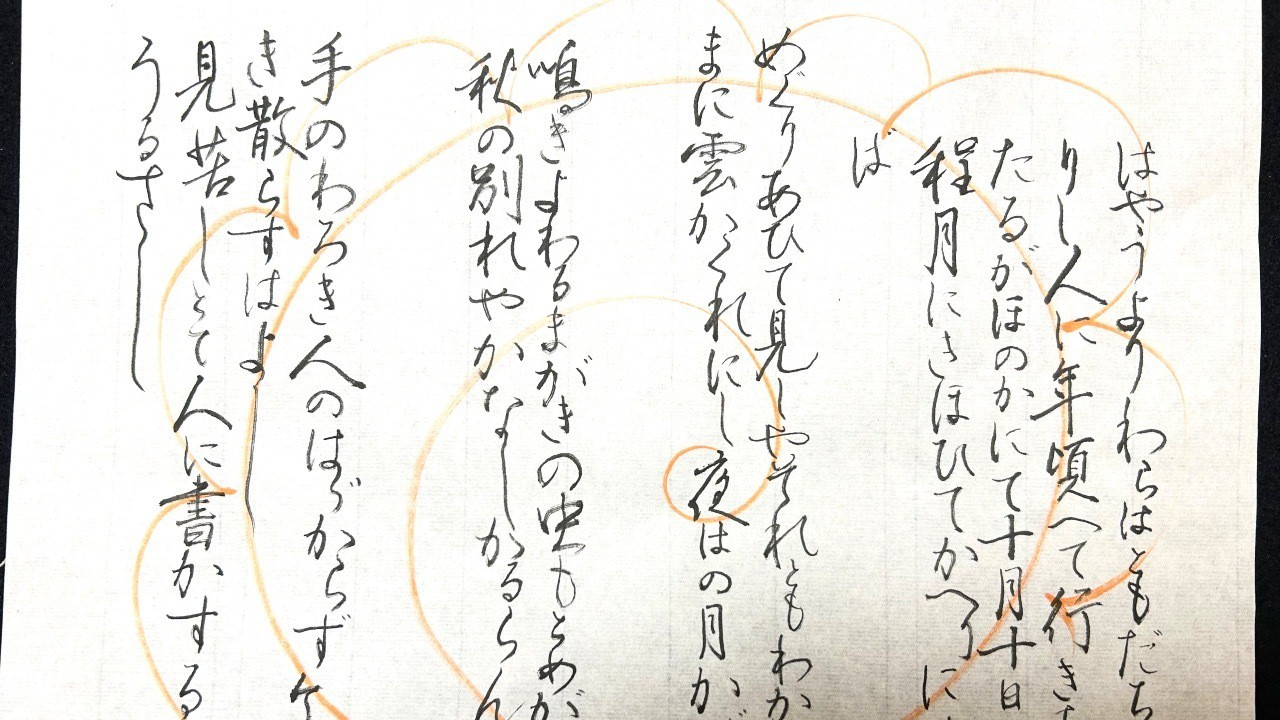 はやうよりわらはともだち
りし人に年頃へて行き
たるがほのかにて十月十日
程月にきほひてかへりに
ば
めぐりあひて見しやそれともわか
まに雲がくれにし夜はの月か
鳴きよわるまがきの虫もとめが
秋の別れやかなしかるらん
手のわろき人のはゞからず
き散らすはよし
見苦しとて人に書かする
うるさし